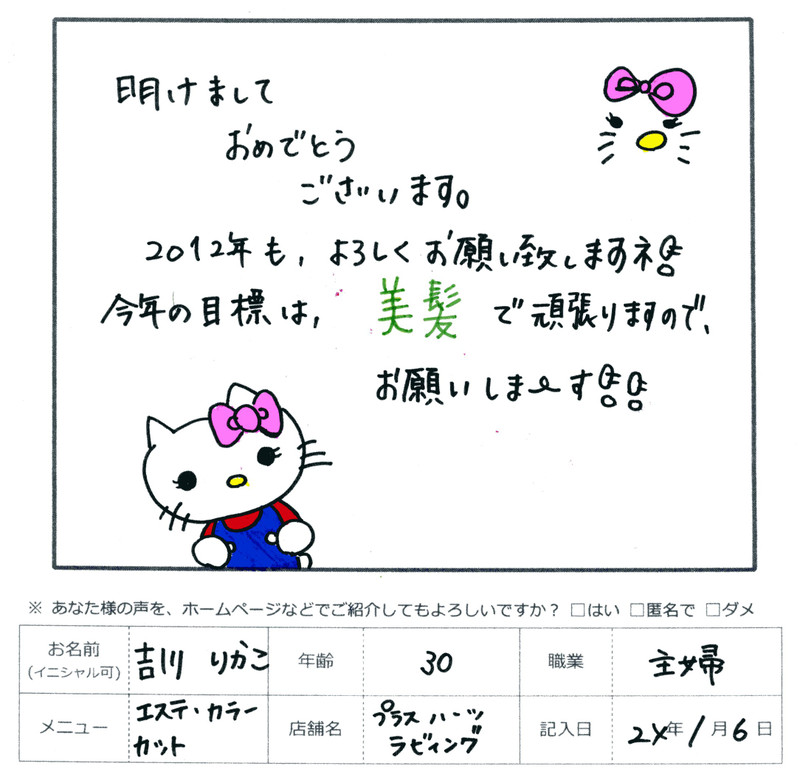 明けまして
おめでとう
ございます。
2012年も、よろしくお願い致しますネ!!
今年の目標は、美髪で頑張りますので、
お願いしま〜す!!
※ あなた様の声を、ホームページなどでご紹介してもよろしいですか? □はい □匿名で □ダメ
お名前 (イニシャル可) 吉川 りかこ 年齢 30 職業 主婦
メニュー エステ・カラー カット 店舗名 プラス ハーツ ラビィング 記入日 24年 1月 6日